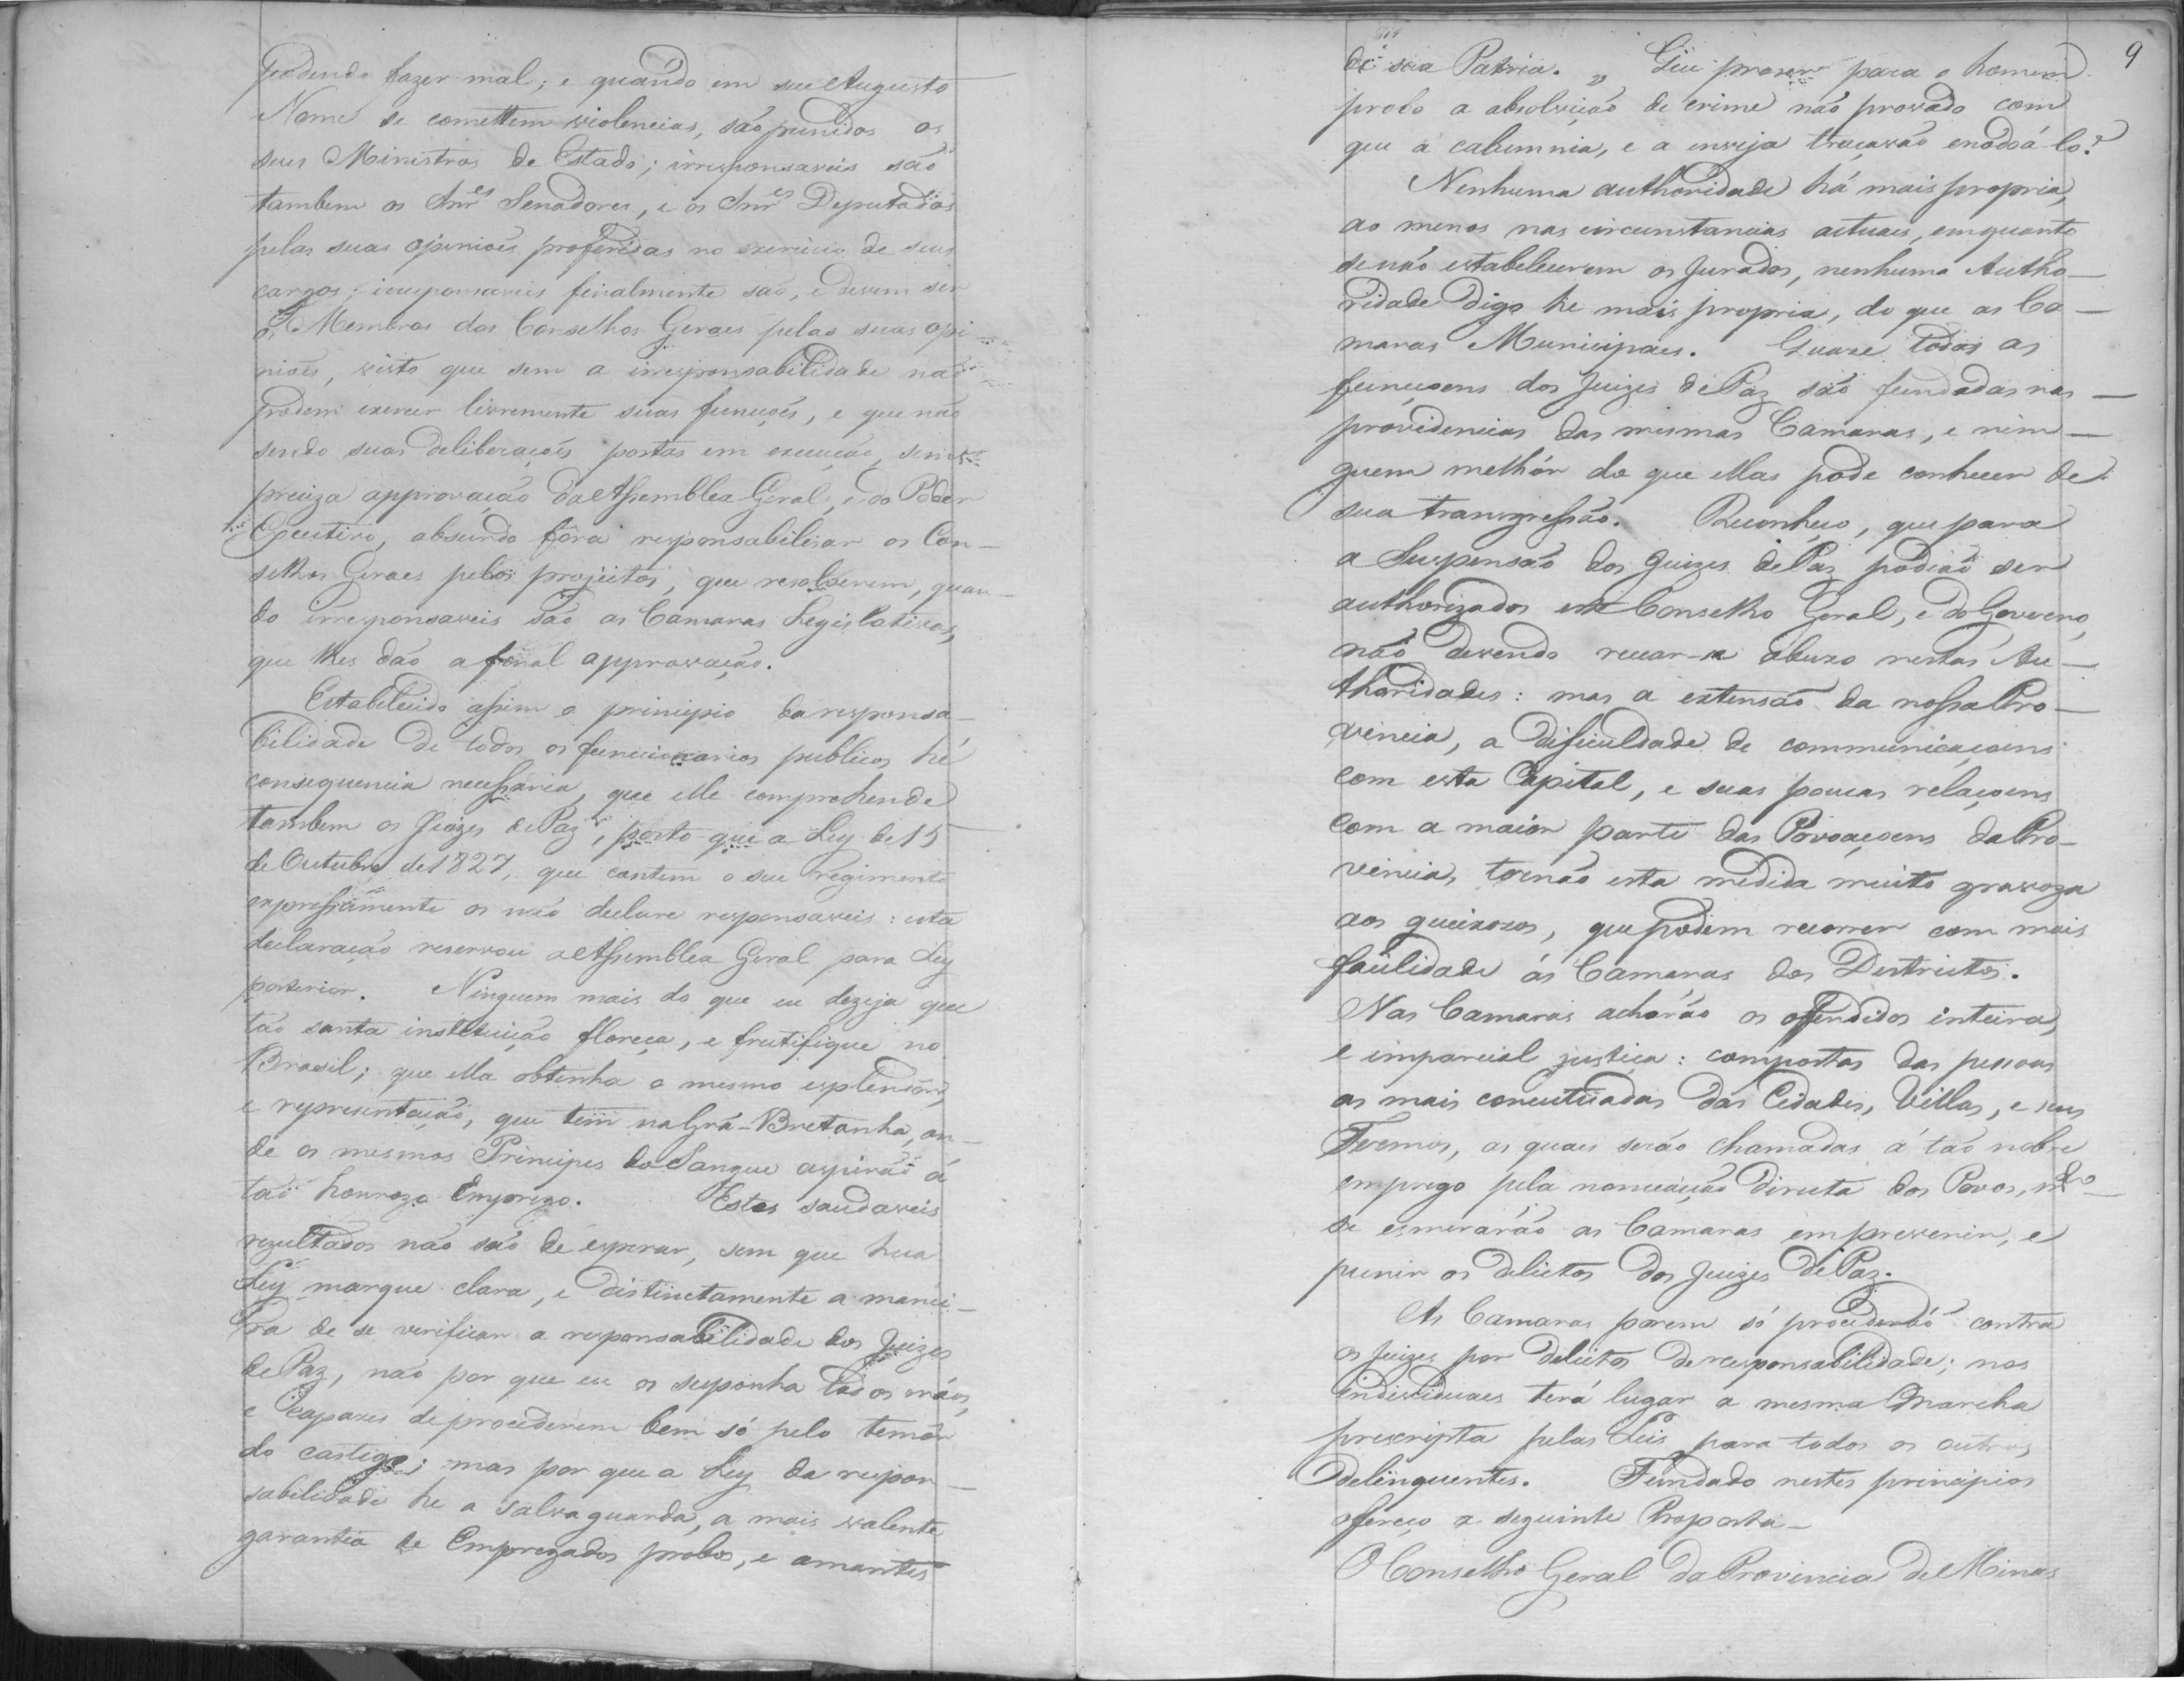 podendo fazer mal; e quando em seu Augusto
Nome se comettem violencias, são punidos os
seus Ministros de Estado; irresponsaveis são
tambem os Snr.es Senadores, e os Snr.es Deputados
pelas suas opinioẽs proferidas no exercicio de seus
cargos; irresponsaveis finalmente são, e devem ser
os Membros dos Conselhos Geraes pelas suas opi-
nioẽs, visto que sem a irresponsabilidade não
podem exercer livremente suas funcçoẽs, e que não
sendo suas deliberaçoẽs postas em execução, sem
preciza approvação da Assemblea Geral, e do Poder
Executivo, absurdo fôra responsabilisar os Con-
selhos Geraes pelos projectos, que resolverem, quan-
do irresponsaveis são as Camaras Legislativas,
que lhes dão a final approvação.
Estabelecido assim o principio da responsa-
bilidade de todos os funccionarios publicos hé
consequencia necessaria, que elle comprehende
tambem os Juizes de Paz, posto que a Ley de 15
de Outubro de 1827, que contem o seu regimento
expressamente os não declare responsaveis: esta
declaração reservou a Assemblea Geral para Ley
posterior. Ninguem mais do que eu dezeja que
tão santa instituição floreça, e frutifique no
Brasil; que ella obtenha o mesmo esplendôr,
e representação, que tem na Grã-Bretanha, on-
de os mesmos Principes do Sangue aspirão á
tão honrozo Emprego. Estes saudaveis
rezultados não são de esperar, sem que hua
Ley marque clara, e distinctamente a manei-
ra de se verificar a responsabilidade dos Juizes
de Paz, não por que eu os suponha todos máos,
e capazes de procederem bem só pelo temôr
do castigo; mas por que a Ley da respon-
sabilidade he a salvaguarda, a mais valente
garantia de Empregados probos, e amantes
9
de sua Patria. „ Que prazer para o homem
probo a absolvição de crime não provado com
que a calumnia, e a inveja traçavão enodoá-lo?
Nenhuma authoridade há mais propria,
ao menos nas circunstancias actuaes, emquanto
se não estabelecerem os Jurados, nenhuma Autho-
ridade digo he mais propria, do que as Ca-
maras Municipaes. Quaze todas as
funçoens dos Juizes de Paz são fundadas nas
providencias das mesmas Camaras, e nin-
guem melhór do que ellas póde conhecer de
sua transgressão. Reconheço, que para
a Suspensão dos Juizes de Paz podião ser
authorizados este Conselho Geral, e do Governo,
não devendo recear-se abuzo nestas Au-
thoridades: mas a extensão da nossa Pro-
vincia, a dificuldade de communicaçoens
com esta Capital, e suas poucas relaçoens
com a maior parte das Povoaçoens da Pro-
vincia, tornão esta medida muito gravoza
aos queixozos, que podem recorrer com mais
facilidade ás Camaras dos Destrictos.
Nas Camaras acharáo os offendidos inteira,
e imparcial justiça: compostas das pessoas
as mais conceituadas das Cidades, Villas, e seus
Termos, as quaes serão chamadas á tão nobre
emprego pela nomeação directa dos Povos, m.to
se esmerarão as Camaras em prevenir, e
punir os delictos dos Juizes de Paz.
As Camaras porem só procederáõ contra
os Juizes por delictos de responsabilidade; nos
individuaes terá lugar a mesma marcha
prescripta pelas Leis para todos os outros
delinquentes. Fundado nestes principios
offereço a seguinte Proposta-
O Conselho Geral da Provincia de Minas